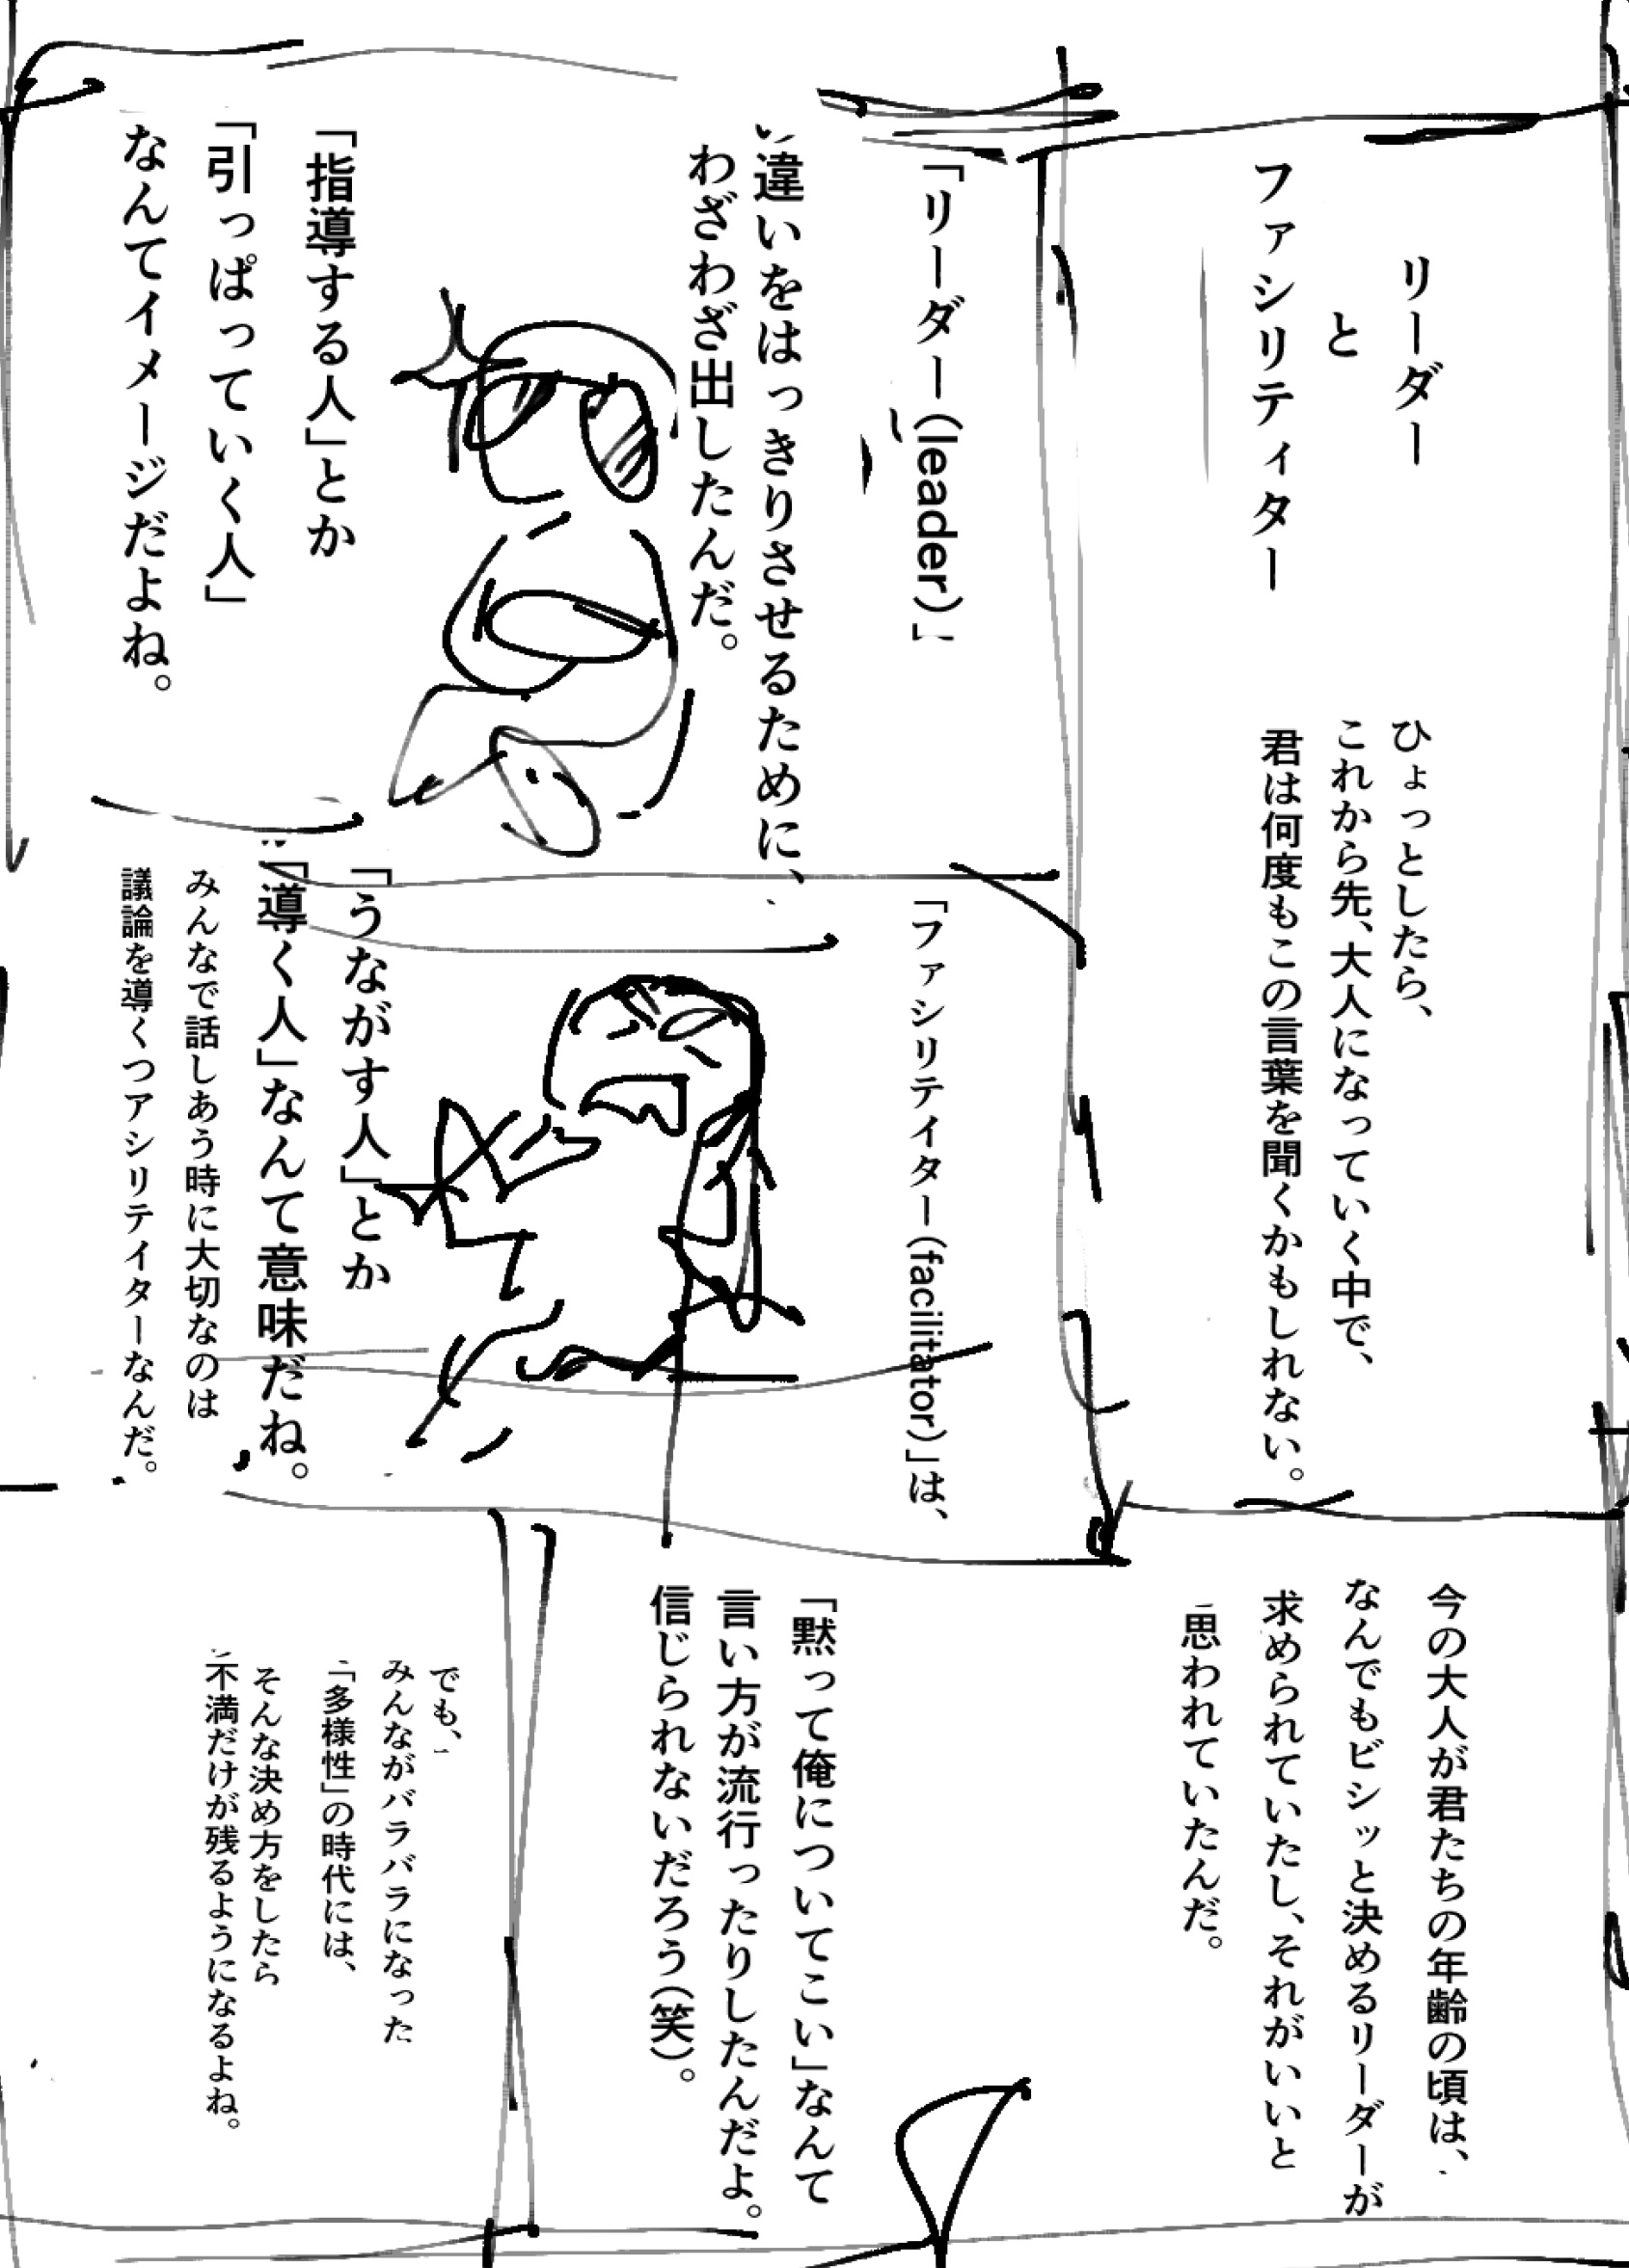 リーダー
と
ファシリティター
ひょっとしたら、
これから先、大人になっていく中で、
君は何度もこの言葉を聞くかもしれない。
「リーダー（leader）」
違いをはっきりさせるために、
わざわざ出したんだ。
「指導する人」とか
「引っぱっていく人」
なんてイメージだよね。
「ファシリテイター（facilitator）」は、
「うながす人」とか
「導く人」なんて意味だね。
みんなで話しあう時に大切なのは
議論を導くつアシリテイターなんだ。
今の大人が君たちの年齢の頃は、
なんでもビシッと決めるリーダーが
求められていたし、それがいいと
思われていたんだ。
「黙って俺についてこい」なんて
言い方が流行ったりしたんだよ。
信じられないだろう（笑）。
でも、
みんながバラバラになった
「多様性」の時代には、
そんな決め方をしたら
不満だけが残るようになるよね。